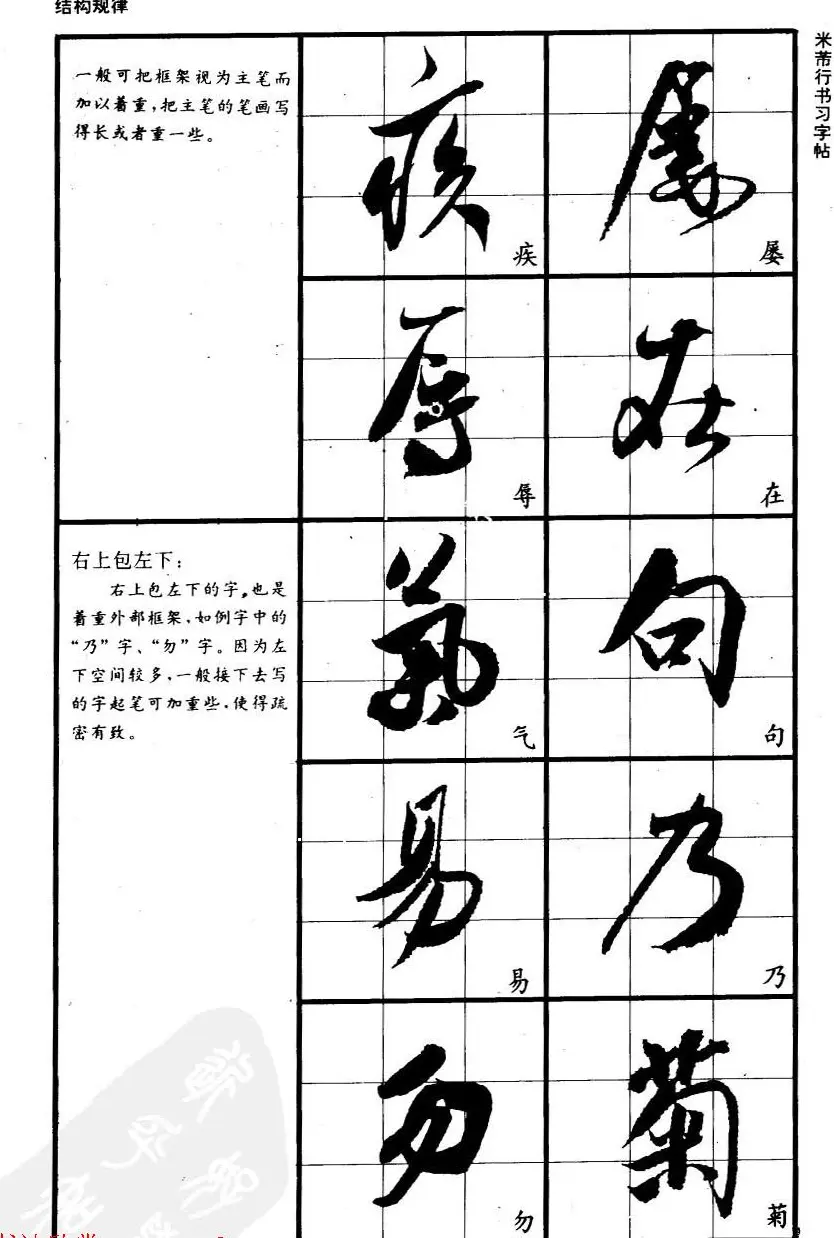 结构规律
米芾行书习字帖
一般可把框架视为主笔而
加以着重，把主笔的笔画写
得长或者重一些。
疾
屡
辱
在
右上包左下：
右上包左下的字，也是
着重外部框架，如例字中的
“乃”字、“勿”字。因为左
下空间较多，一般接下去写
的字起笔可加重些，使得疏
密有致。
气
句
易
乃
勿
菊